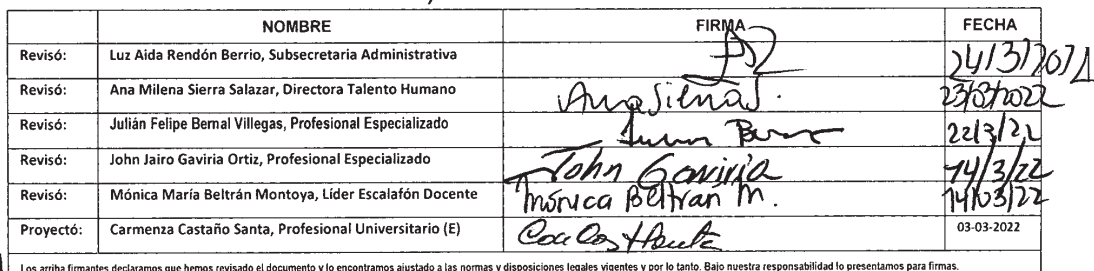 NOMBRE FIRMA FECHA
Revisó: Luz Aida Rendón Berrio, Subsecretaria Administrativa
Revisó: Ana Milena Sierra Salazar, Directora Talento Humano AnaSierraS. 23/03/2022
Revisó: Julián Felipe Bernal Villegas, Profesional Especializado 22/3/22
Revisó: John Jairo Gaviria Ortiz, Profesional Especializado John Gaviria 14/3/22
Revisó: Mónica María Beltrán Montoya, Líder Escalafón Docente Mónica Beltran M. 14/03/22
Proyectó: Carmenza Castaño Santa, Profesional Universitario (E) 03-03-2022
Los arriba firmantes declaramos que hemos revisado el documento y lo encontramos ajustado a las normas y disposiciones legales vigentes y por lo tanto. Bajo nuestra responsabilidad lo presentamos para firmas.